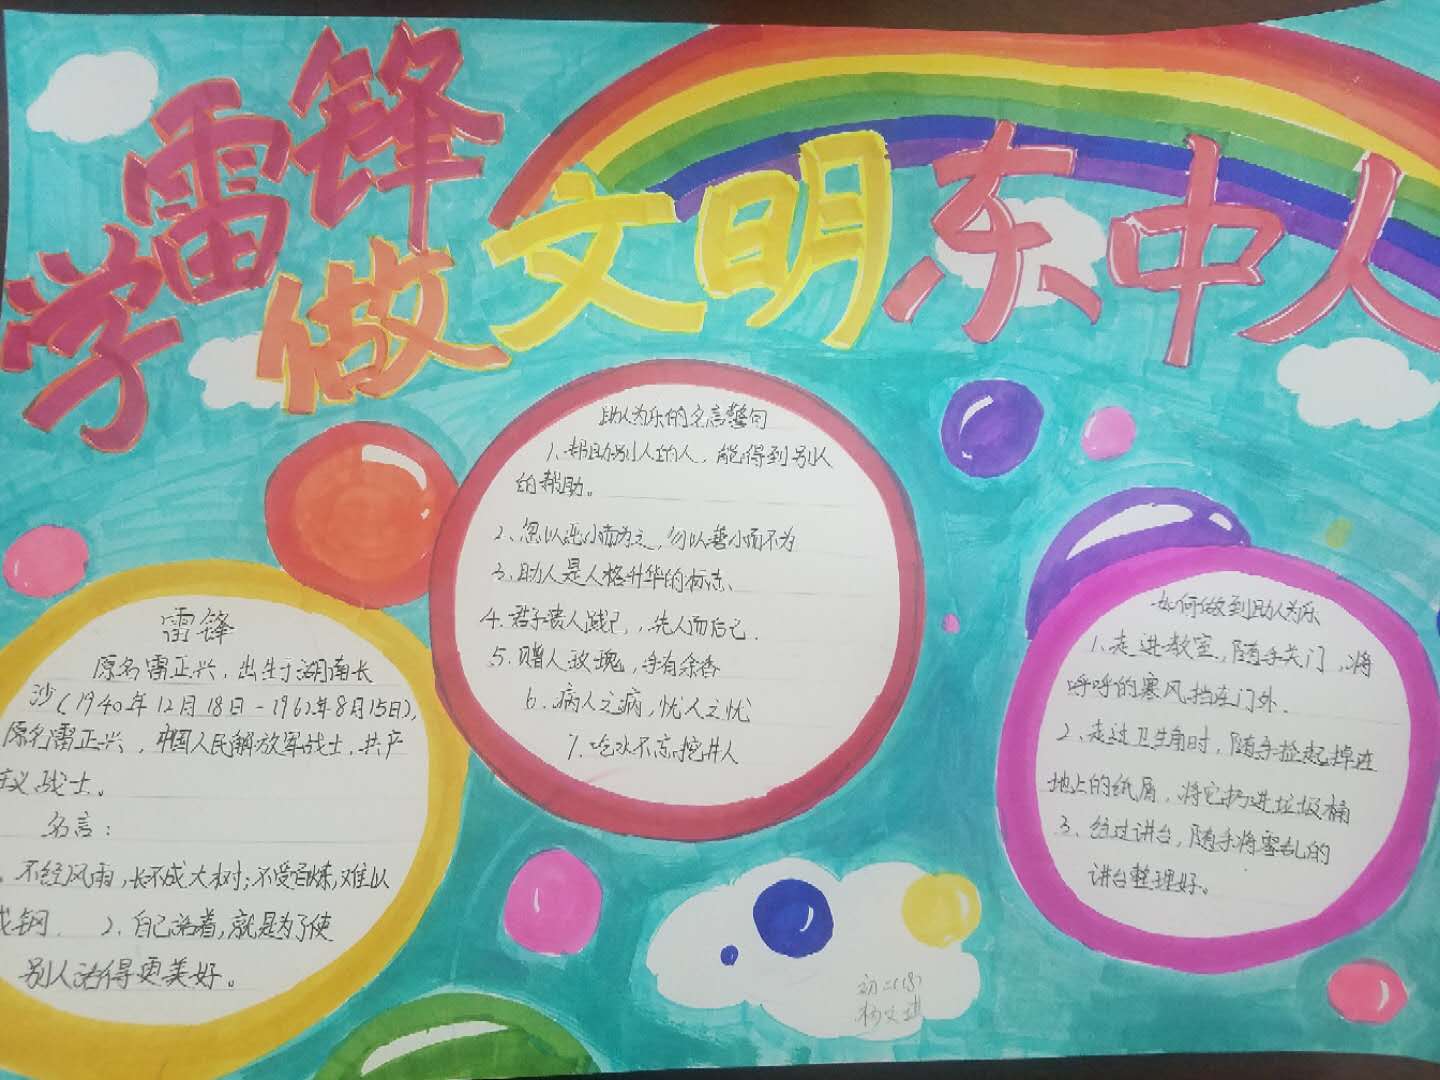 学雷锋
做文明东中人
助人为乐的名言警句
1、帮助别人的人，能得到别人
的帮助。
2、忽以恶小而为之，勿以善小而不为
3、助人是人格升华的标志、
4、君子贵人贱己，，先人而后己．
5、赠人玫瑰，手有余香
6、病人之病，忧人之忧
7、吃水不忘挖井人
雷锋
原名雷正兴，出生于湖南长
沙（1940年12月18日－1962年8月15日），
原名雷正兴，中国人民解放军战士，共产
主义战士。
名言：
不经风雨，长不成大树；不受百炼，难以
成钢．2、自己活着，就是为了使
别人活得更美好。
如何做到助人为乐
1、走进教室，随手关门，将
呼呼的寒风挡在门外．
2、走过卫生角时，随手捡起掉在
地上的纸屑，将它扔进垃圾桶
3、经过讲台，随手将零乱的
讲台整理好。
初二
杨文琪